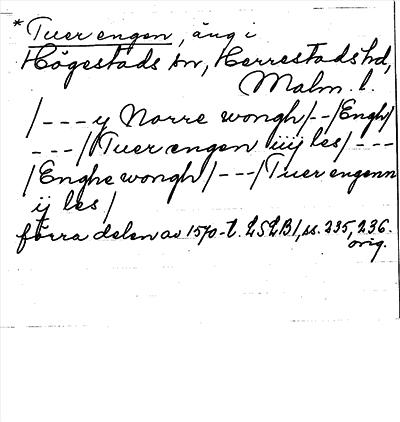 * Tuer engen, äng i
Högestads sn, Herrestads hd,
Malm. l.
/--- y Norre wongh/--/Engh/
---/Tuer engen iiij les/---
/Enghe wongh/---/Tuer engenn
ij les/
förra delen av 1570-t. LSLB1, ss. 235, 236.
orig.